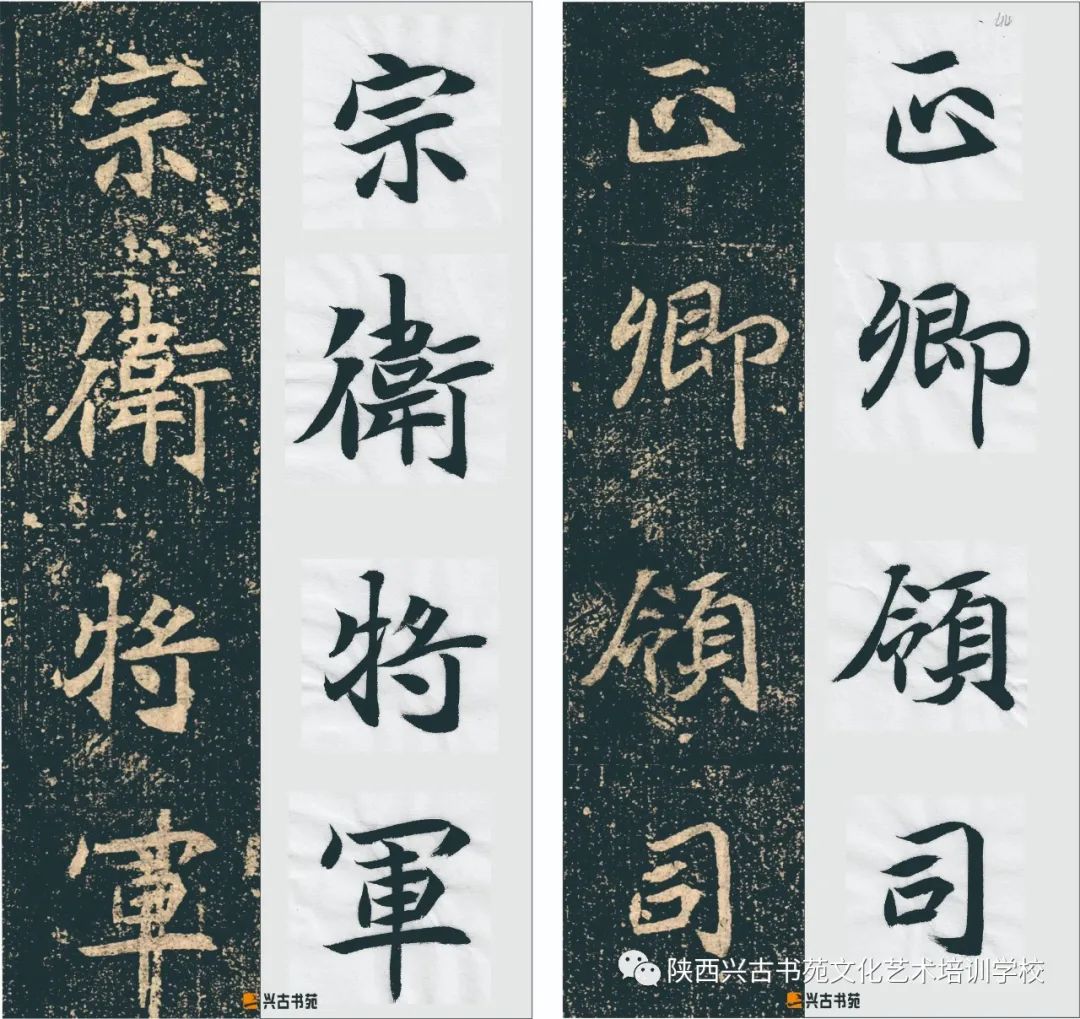 正卿領司
正卿領司
宗衛将軍
宗衛将軍
兴古书苑
兴古书苑
陕西兴古书苑文化艺术培训学校